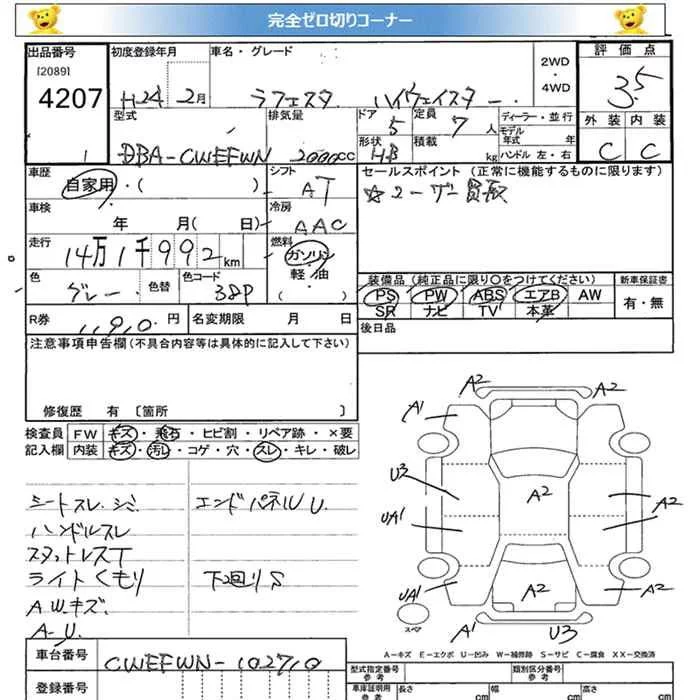 完全ゼロ切りコーナー
出品番号 初度登録年月 車名・グレード 2WD・4WD 評価点
[2089]
4207 H24 2月 ラフェスタ ハイウェイスター 3.5
型式 排気量 ドア 5 定員 7人 ディーラー・並行 外装 内装
モデル年式 年
1 DBA-CWEFWN 2000cc 形状 HB 積載 kg ハンドル 左・右 C C
車歴 シフト セールスポイント (正常に機能するものに限ります)
自家用・( ) AT ☆ユーザー買取
車検 冷房
年 月( 日) AAC
走行 燃料
14万1千992km ガソリン・軽・油
( )
色 色替 色コード 装備品(純正品に限り○をつけてください) 新車保証書
グレー 38P PS PW ABS エアB AW 有・無
SR ナビ TV 本革
R券 11910円 名変期限 月 日 後日品
注意事項申告欄(不具合内容等は具体的に記入して下さい)
修復歴 有 [箇所 ]
検査員 FW キズ・飛石・ヒビ割・リペア跡・×要
記入欄 内装 キズ・汚レ・コゲ・穴・スレ・キレ・破レ
シートスレ、シミ エンドパネルU.
ハンドルスレ
スタットレスT
ライトくもり 下回りS
A.Wキズ.
A-U.
A2 A2
A1
U3 A2 A2
UA1
UA1 A2 A2
スペア A1 U3
A-キズ E-エクボ U-凹み W-補修跡 S-サビ C-腐食 XX-交換済
車台番号 CWEFWN-102710
型式指定番号 参考 類別区分番号 参考
登録番号 車庫証明用 参考 長さ cm 幅 cm 高さ cm